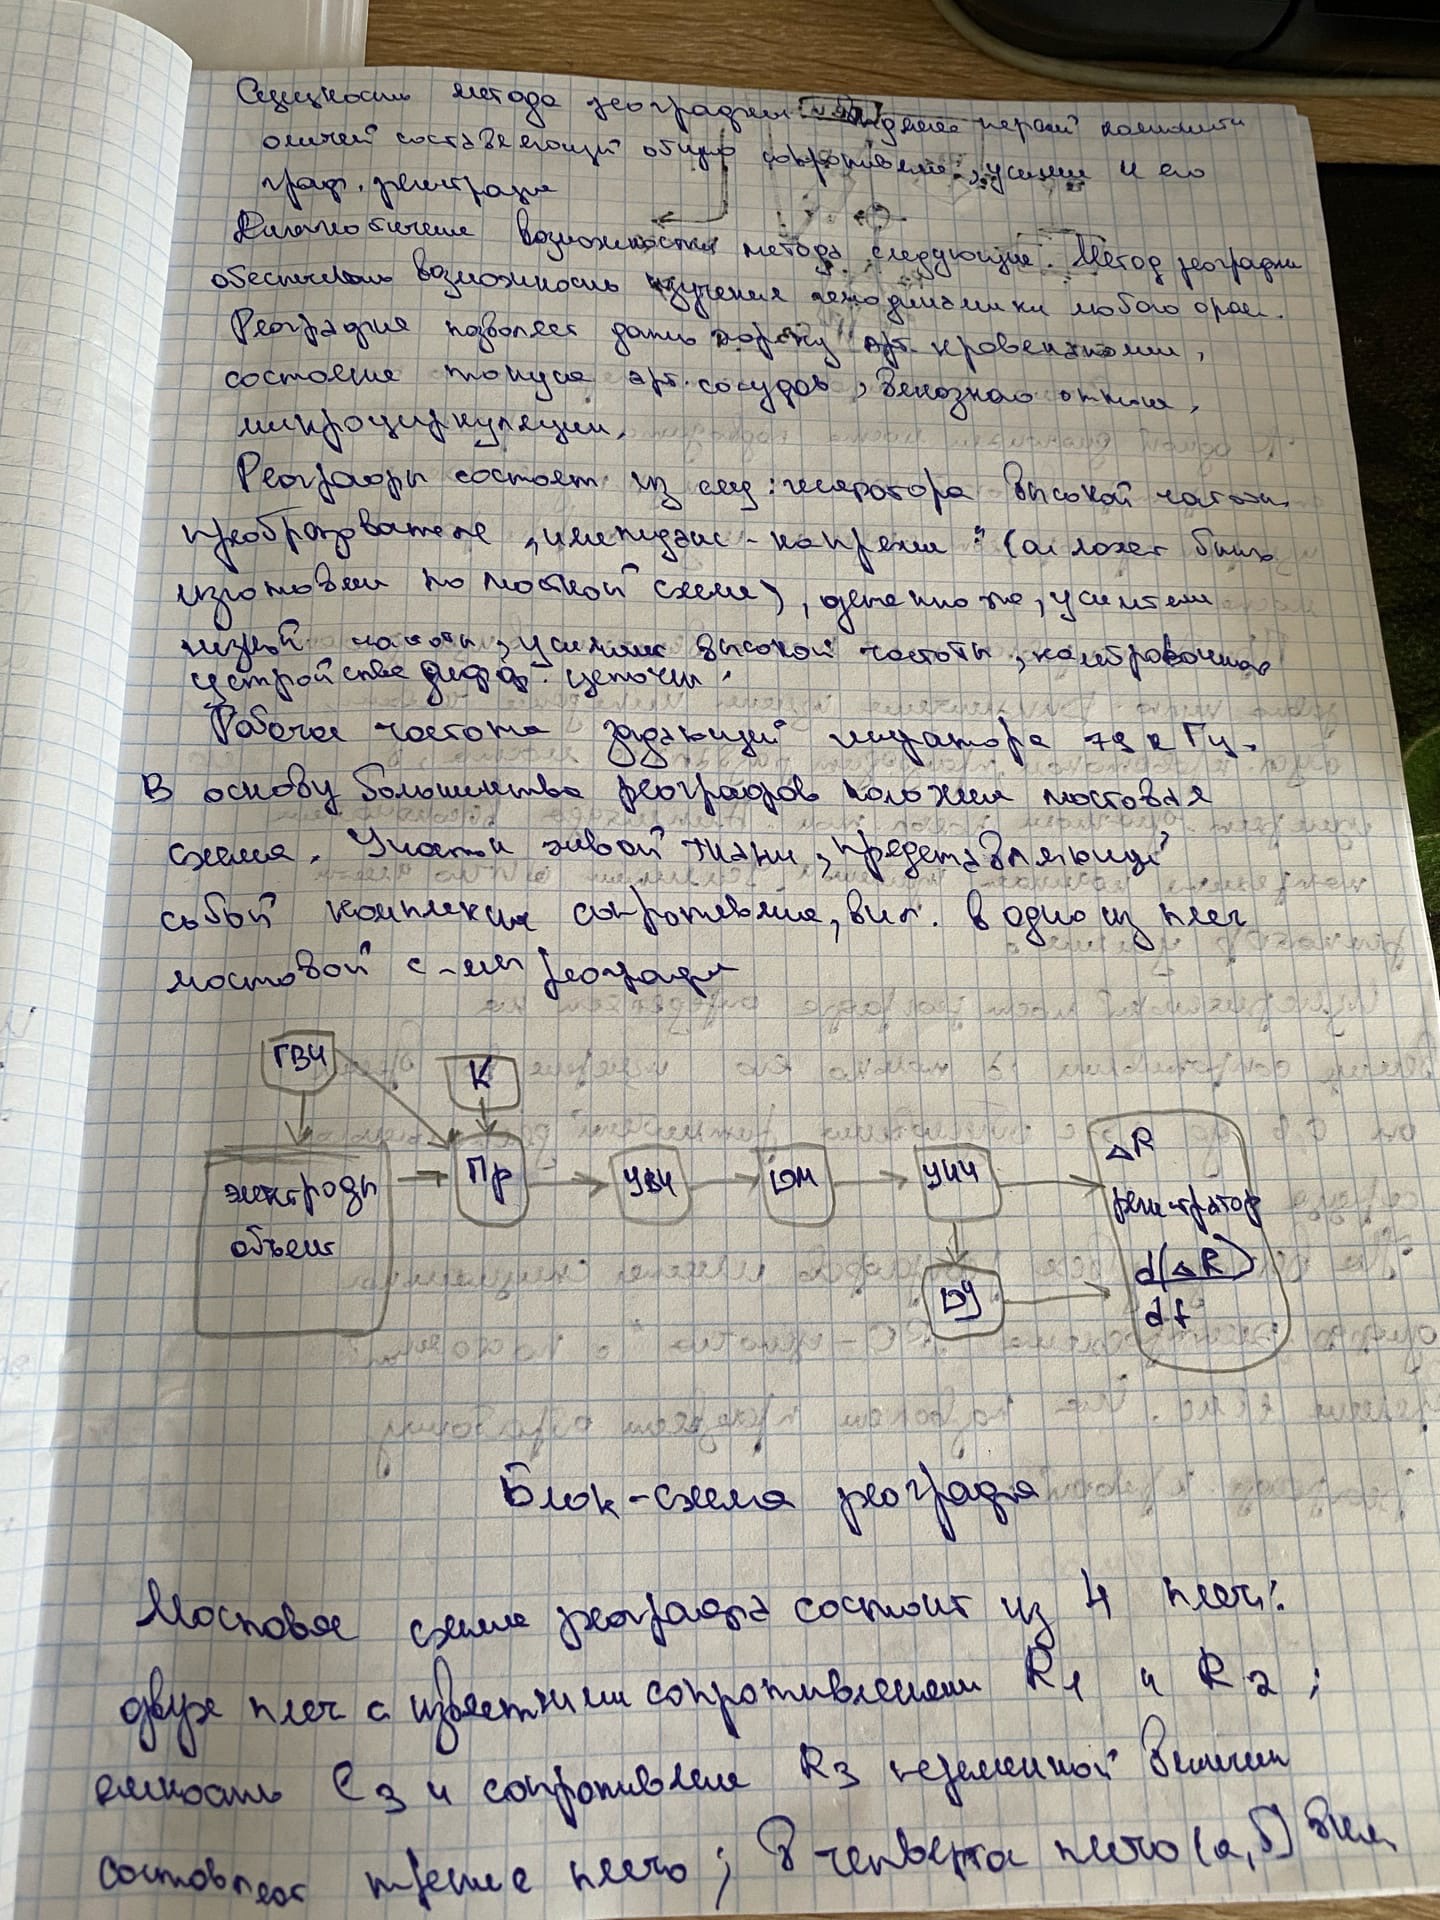 Сущность метода реографии
омичей составляющий общго сопротивление, усиление и его
граф. регистрация
возможности метода следующие. Метод реографии
возможность изучения гемодинамики любого орган.
Реография позволяет дать оценку арт. кровенаполнии,
состояние тонуса арт. сосудов, венозного оттока,
микроциркуляции.
Реографы состоят из след: генератора высокой частоты
преобразователе „импеданс - напряжен" (он может быть
изготовлен по мостовой схеме), усилители
низкой частоты, усилитель высокой частоты, калибровочная
устройства дифф. цепочки.
Рабочая частота задающий генератора 79 кГц.
В основу большинства реографов положен мостовая
схема. Участки живой ткани, представляющий
собой комплексн сопротивление, вкл. в одно из плеч
мостовой с-мы реографа
ГВЧ К
электроды Пр УВЧ DM УНЧ ΔR
объект регистратор
ДУ d(ΔR)
dt
Блок-схема реографа
Мостовая схема реографа состоит из 4 плеч:
двух плеч с известными сопротивлениями R1 и R2;
емкость C3 и сопротивление R3 переменной величин
составляет третие плечо; В четверта плечо (а, б) вкл